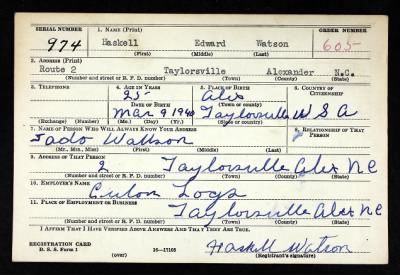 SERIAL NUMBER 1. NAME (Print) ORDER NUMBER
974 Haskell Edward Watson 605
(First) (Middle) (Last)
2. ADDRESS (Print)
Route 2 Taylorsville Alexander N.C.
(Number and street or R. F. D. number) (Town) (County) (State)
3. TELEPHONE 4. AGE IN YEARS 5. PLACE OF BIRTH 6. COUNTRY OF CITIZENSHIP
25 Alex
DATE OF BIRTH (Town or county)
Mar 9 1940 Taylorsville U S A
(Exchange) (Number) (Mo.) (Day) (Yr.) (State or country)
7. NAME OF PERSON WHO WILL ALWAYS KNOW YOUR ADDRESS 8. RELATIONSHIP OF THAT PERSON
Watson
(Mr., Mrs., Miss) (First) (Middle) (Last)
9. ADDRESS OF THAT PERSON
2 Taylorsville Alex N C
(Number and street or R. F. D. number) (Town) (County) (State)
10. EMPLOYER'S NAME
11. PLACE OF EMPLOYMENT OR BUSINESS
Taylorsville Alex N C
(Number and street or R. F. D. number) (Town) (County) (State)
I AFFIRM THAT I HAVE VERIFIED ABOVE ANSWERS AND THAT THEY ARE TRUE.
REGISTRATION CARD
D. S. S. Form 1 16—17105 Haskell Watson
(over) (Registrant's signature)